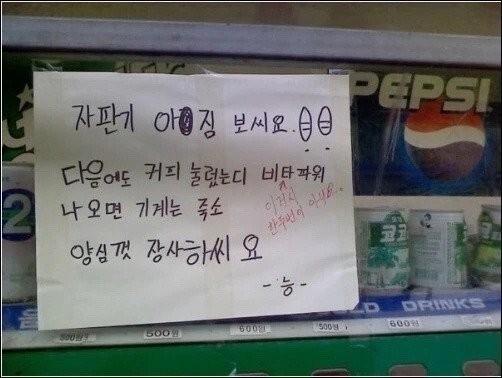 PEPSI
자판기 아짐 보씨요.
다음에도 커피 눌렀는디 비타파워
이것시
한두번이 아녀
나오면 기계는 죽소
양심껏 장사하씨요
-능-
2
코코
COLD DRINKS
500원
500원
600원
500원
600원